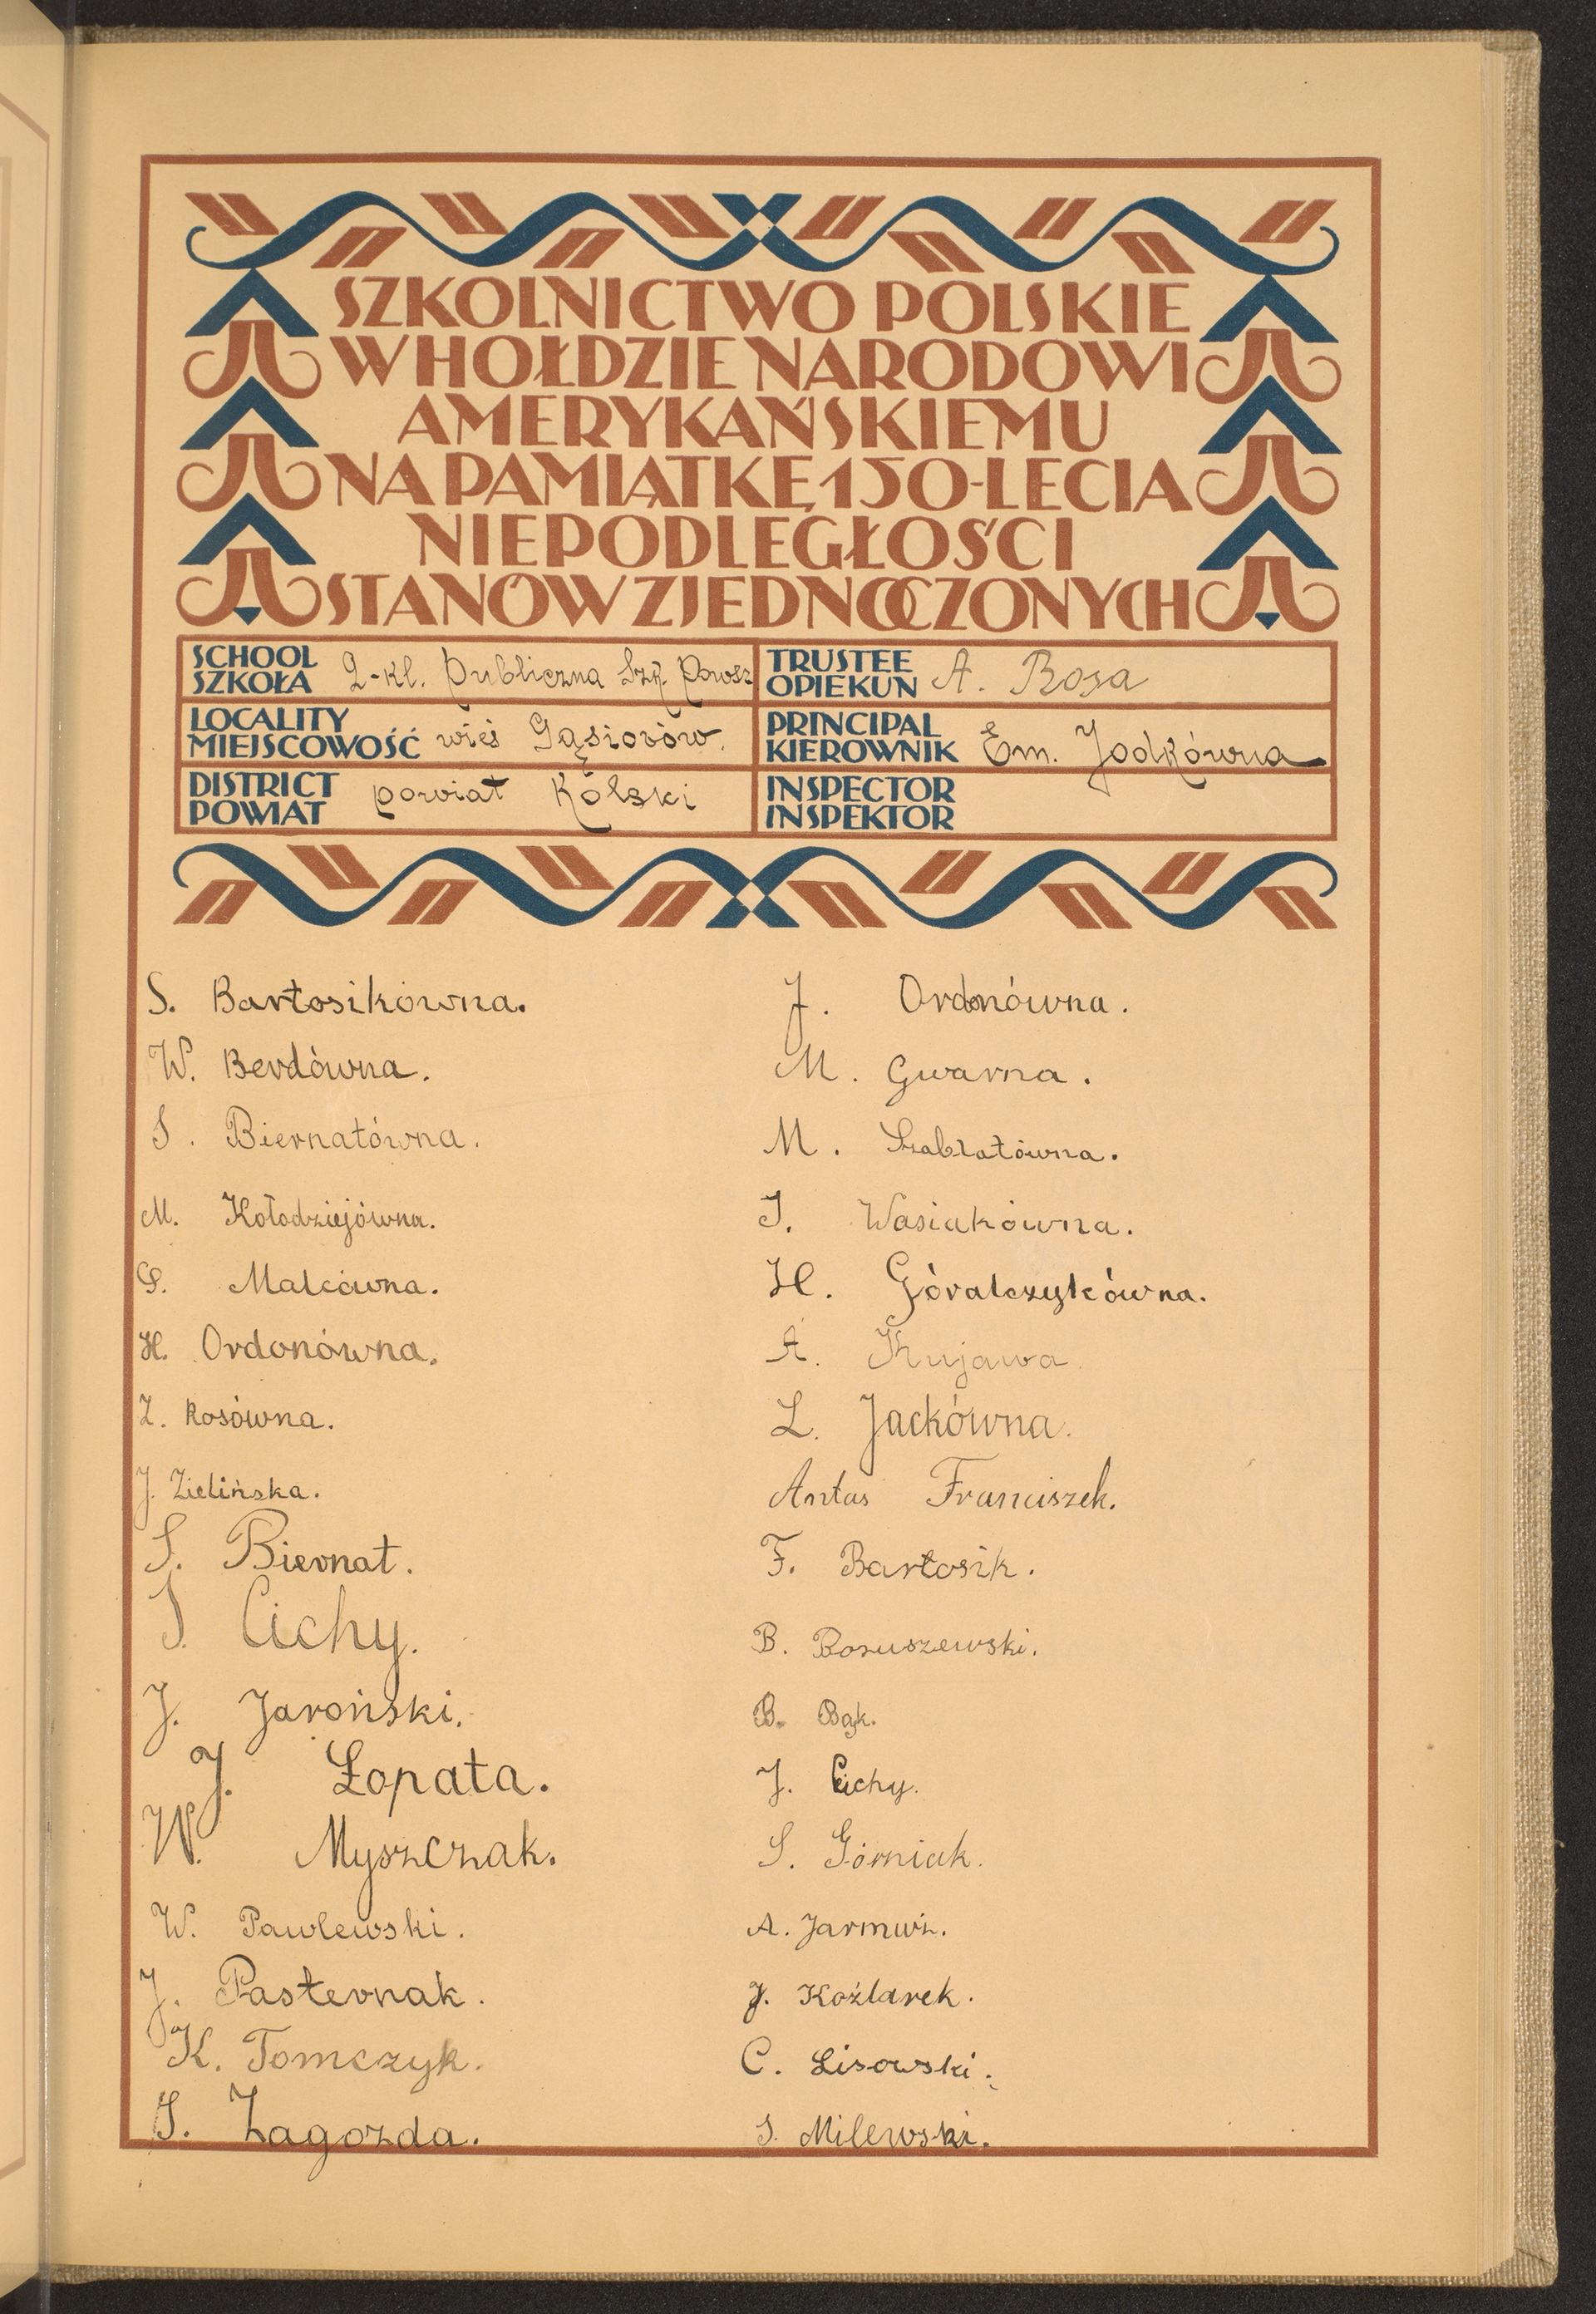 SZKOLNICTWO POLSKIE
W HOŁDZIE NARODOWI
AMERYKAŃSKIEMU
NA PAMIĄTKĘ 150-LECIA
NIEPODLEGŁOŚCI
STANÓW ZJEDNOCZONYCH
SCHOOL
SZKOŁA 2-kl. Publiczna Szk. Powsz
TRUSTEE
OPIEKUN A. Rosa
LOCALITY
MIEJSCOWOŚĆ wieś Gąsiorów.
PRINCIPAL
KIEROWNIK Em. Jodkówna
DISTRICT
POWIAT powiat Kolski
INSPECTOR
INSPEKTOR
S. Bartosikówna.
W. Berdówna.
S. Biernatówna.
M. Kołodziejówna.
S. Malcówna.
H. Ordonówna.
Z. Rosówna.
J. Zielińska.
S. Biernat.
S. Cichy.
J. Jaroński.
J. Łopata.
W. Myszczak.
W. Pawlewski.
J. Pasternak.
K. Tomczyk.
S. Zagozda.
J. Ordonówna.
M. Gwarna.
M. Szablatówna.
J. Wasiakówna.
H. Góralczykówna.
A. Kujawa.
L. Jackówna.
Antas Franciszek.
F. Bartosik.
B. Boruszewski.
B. Bąk.
J. Cichy.
S. Górniak.
A. Jarmuż.
J. Koźlarek.
C. Lisowski.
S. Milewski.